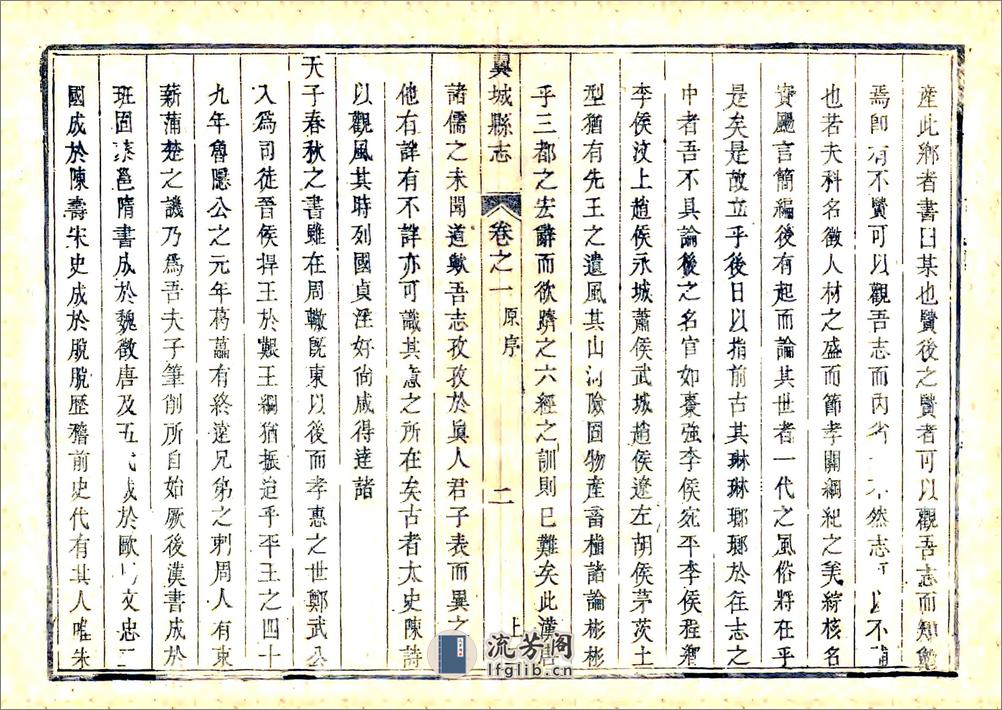 產此鄉者書曰某也賢後之賢者可以觀吾志而知勉
焉卽有不賢可以觀吾志而內省不然志以不
也若夫科名徵人材之盛而節孝關綱紀之美綜核名
實颺言簡編後有起而論其世者一代之風俗將在乎
是矣是故立乎後日以指前古其琳琳瑯瑯於往志之
中者吾不具論後之名官如棗強李侯宛平李侯程鄉
李侯汶上趙侯永城蕭侯武城趙侯遼左胡侯茅茨土
型猶有先王之遺風其山河險固物產畜植諸論彬彬
乎三都之宏辭而欲躋之六經之訓則已難矣此漢唐
翼城縣志
卷之一
原序
二
上
諸儒之未聞道歟吾志孜孜於眞人君子表而異之
他有詳有不詳亦可識其意之所在矣古者太史陳詩
以觀風其時列國貞淫好尙咸得達諸
天子春秋之書雖在周轍旣東以後而孝惠之世鄭武公
入爲司徒晉侯捍王於艱王綱猶振迨乎平王之四十
九年魯隱公之元年葛藟有終遠兄弟之刺周人有束
薪蒲楚之譏乃爲吾夫子筆削所自始厥後漢書成於
班固蔡邕隋書成於魏徵唐及五代成於歐文忠二
國成於陳壽宋史成於脫脫歷稽前史代有其人唯朱
流芳阁
lfglib.cn